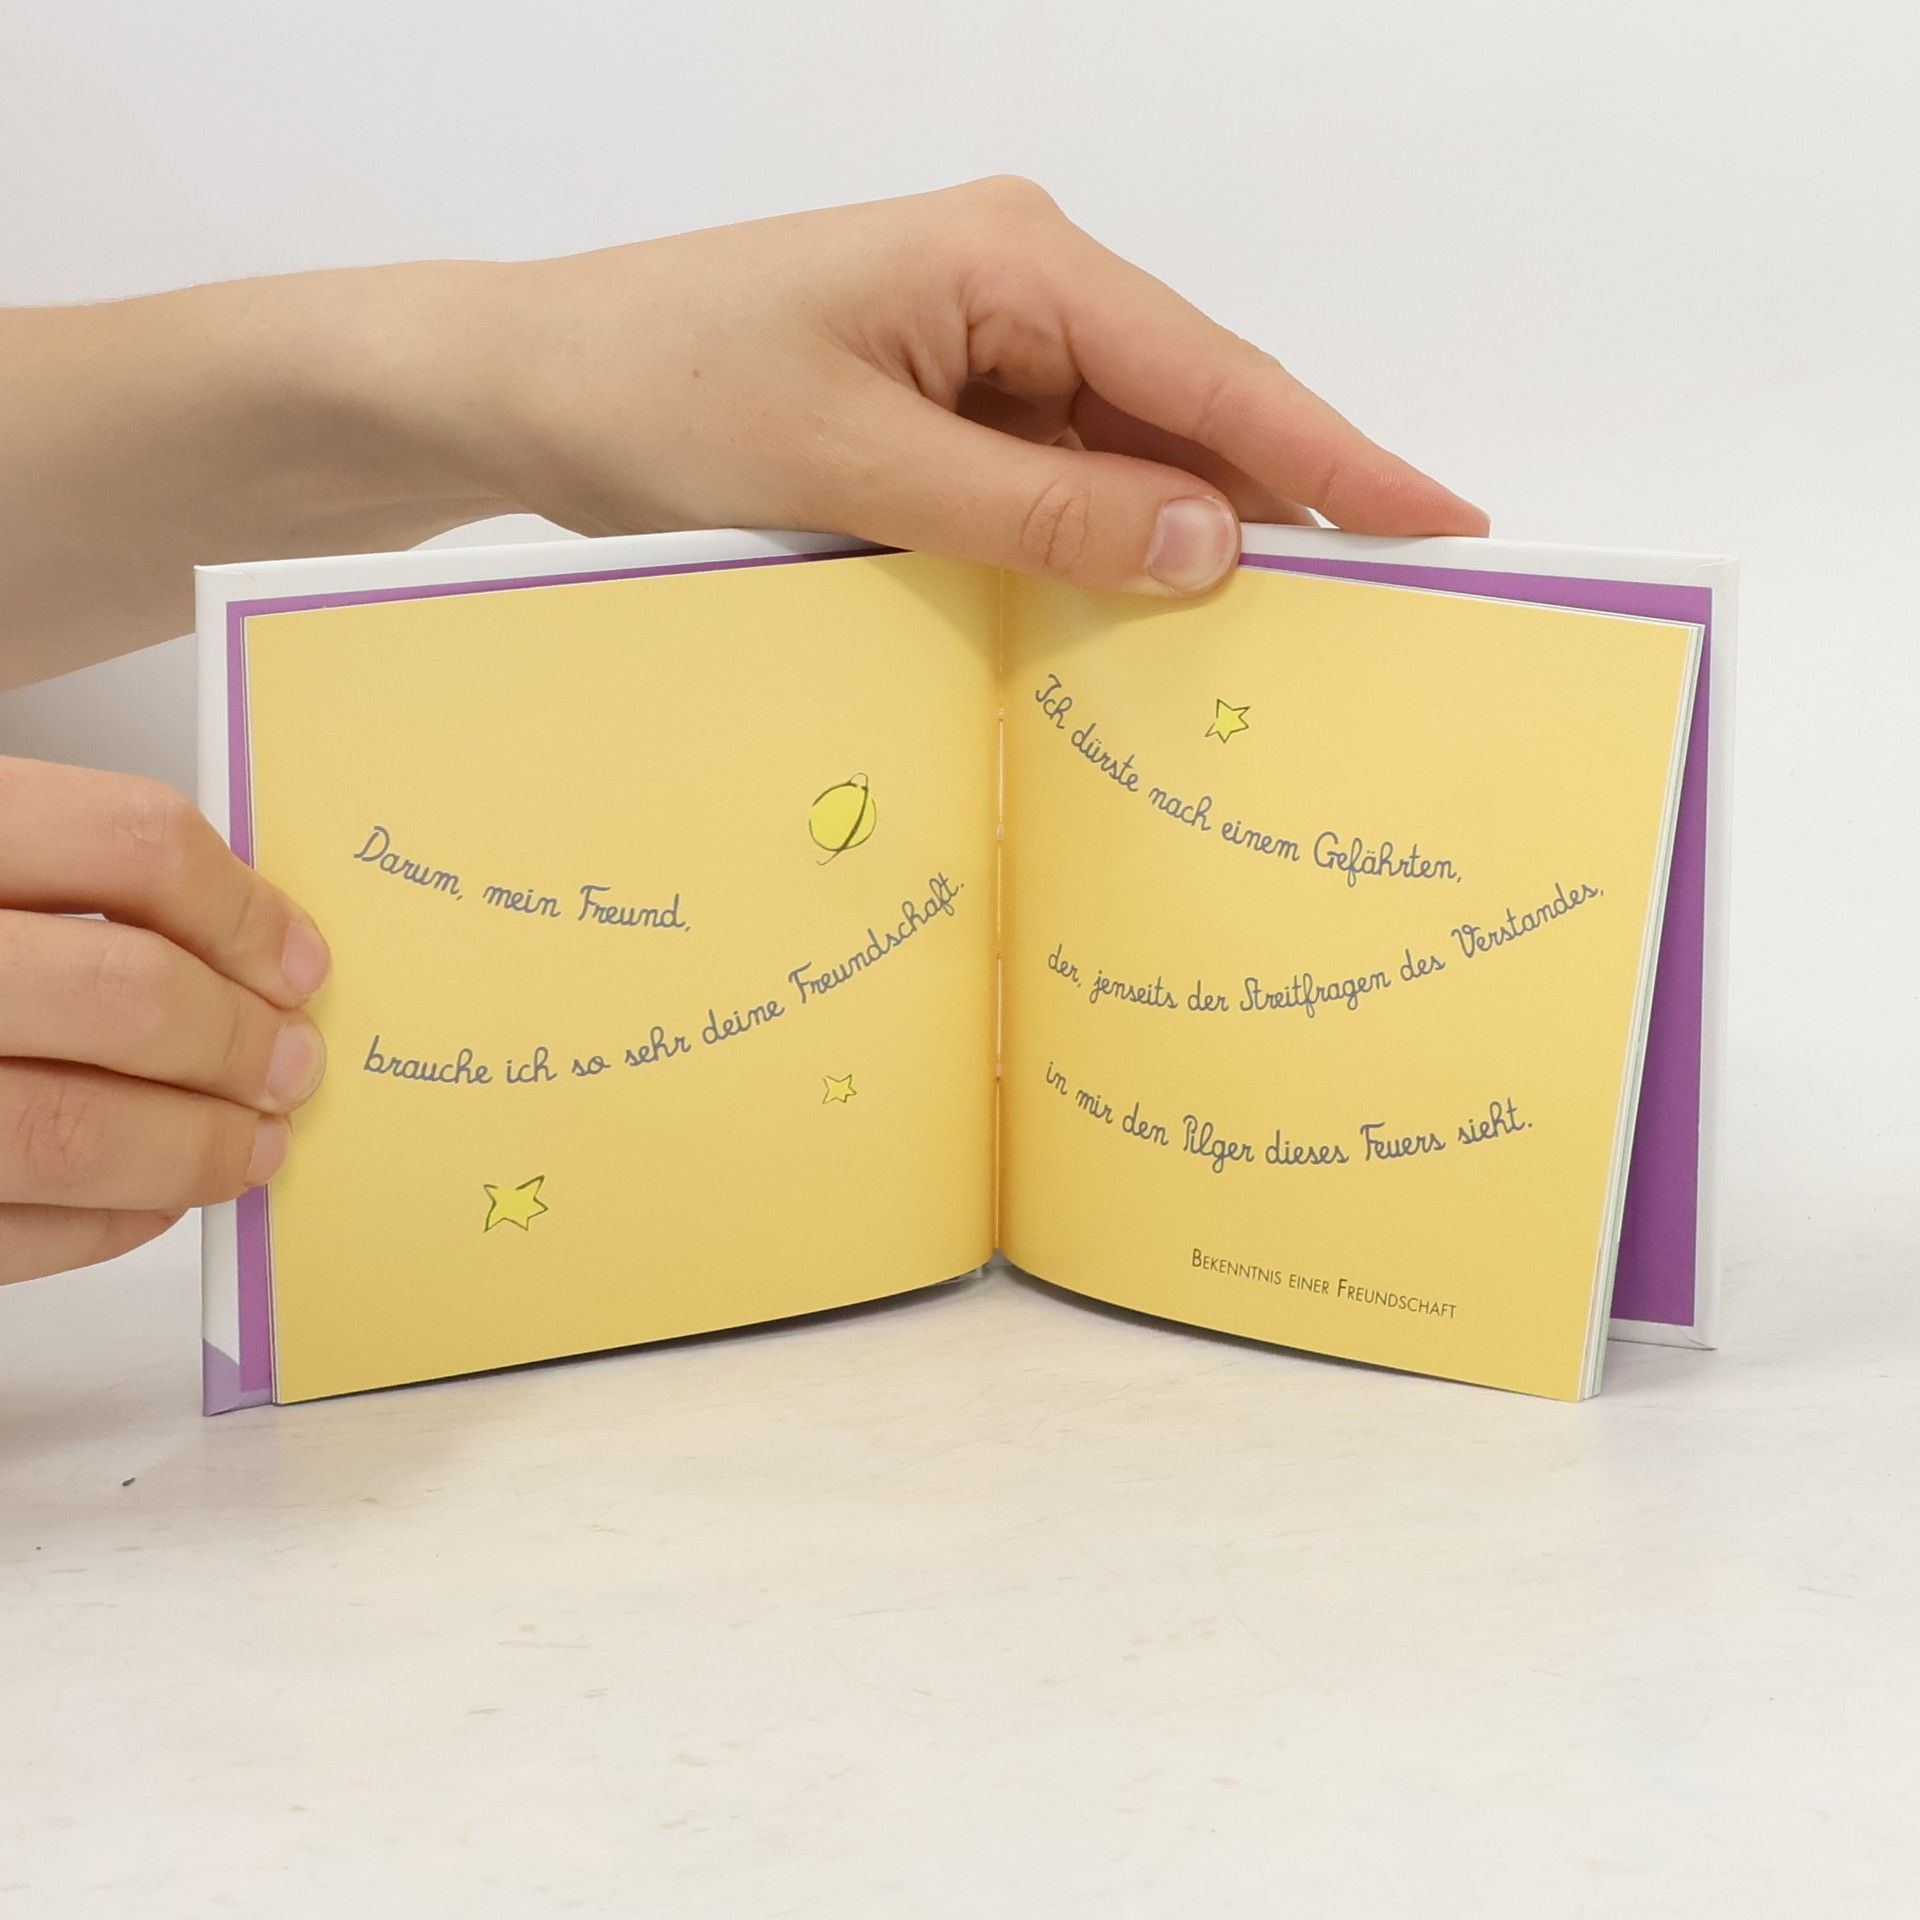 Darum, mein Freund,
brauche ich so sehr deine Freundschaft.
Ich dürste nach einem Gefährten,
der, jenseits der Streitfragen des Verstandes,
in mir den Pilger dieses Feuers sieht.
Bekenntnis einer Freundschaft